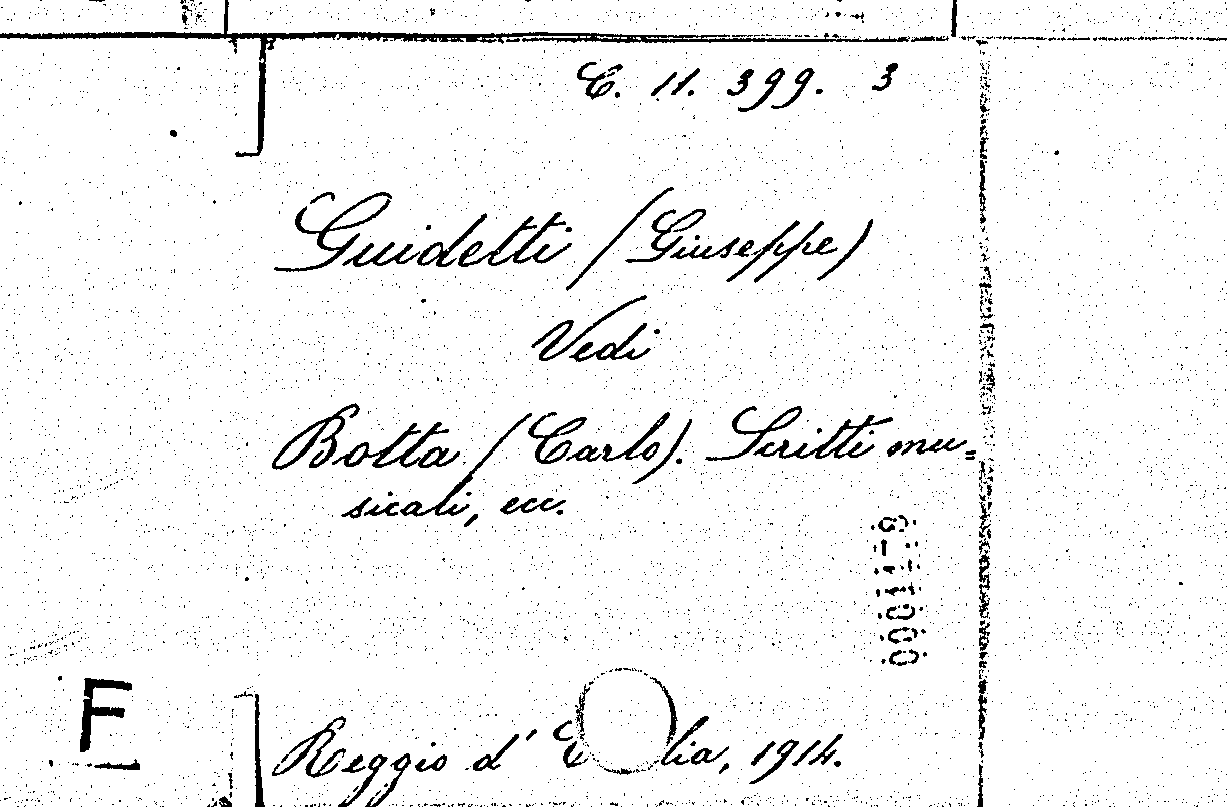 C. 11. 399. 3
Guidetti (Giuseppe)
Vedi
Botta (Carlo). Scritti mu=
sicali, ecc.
Reggio d' E lia, 1914.
F